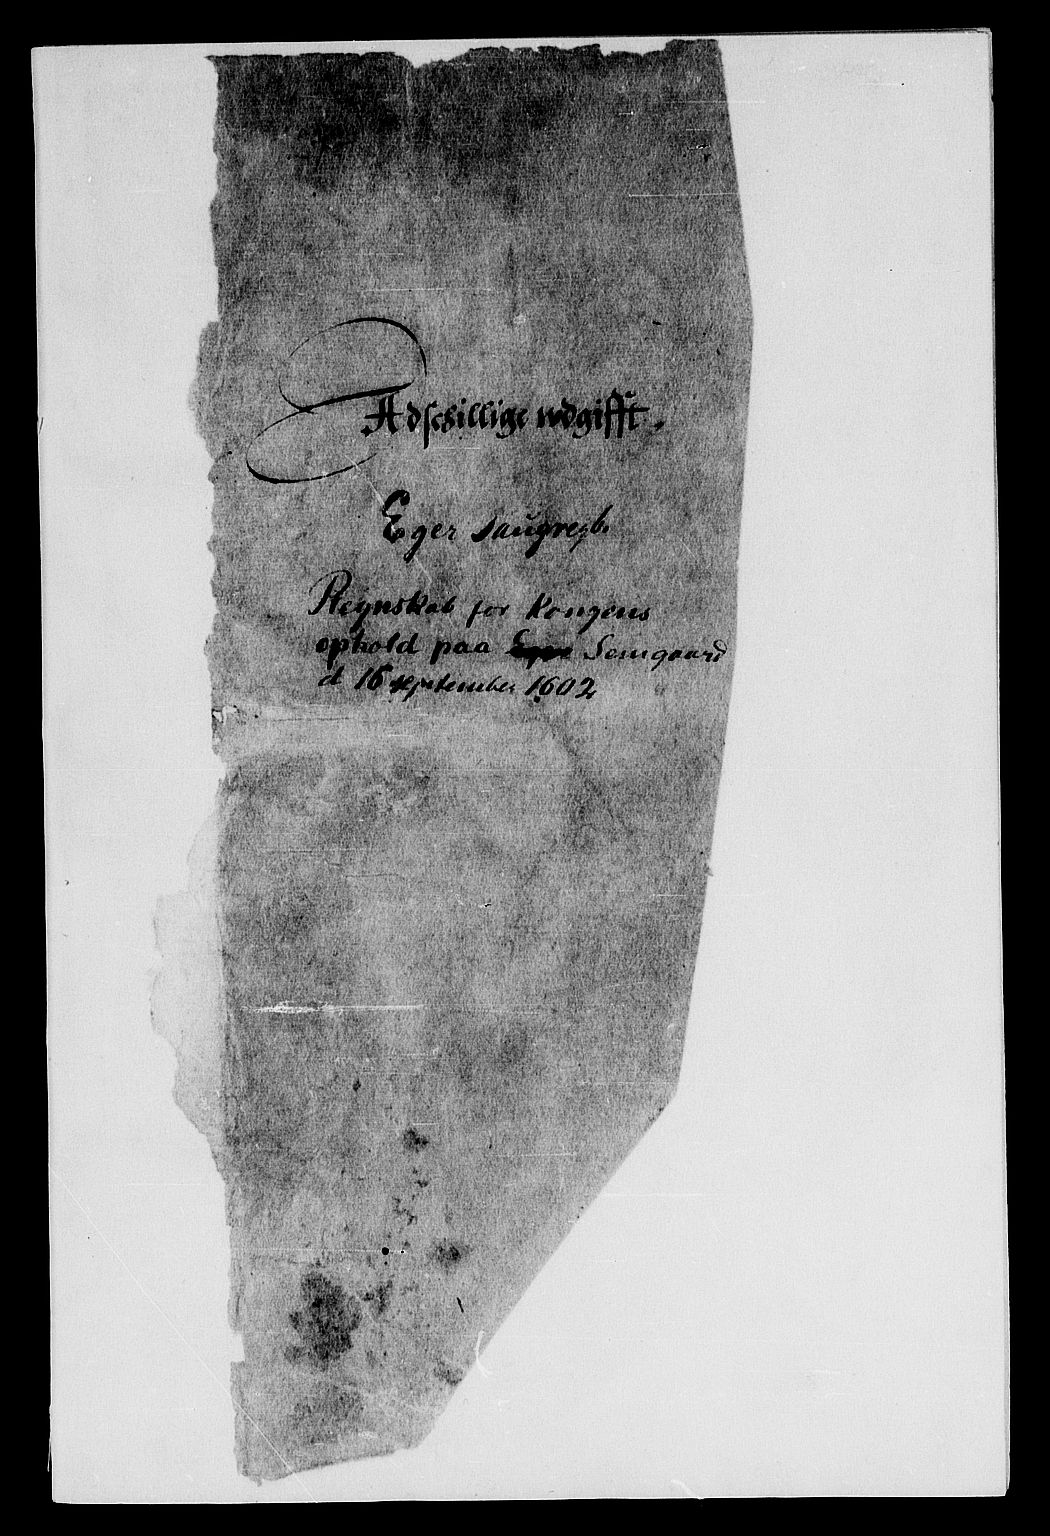 Adschillige udgifft.
Eger
Regnskab for Kongens
ophold paa Eger Semgaard
d 16 september 1602